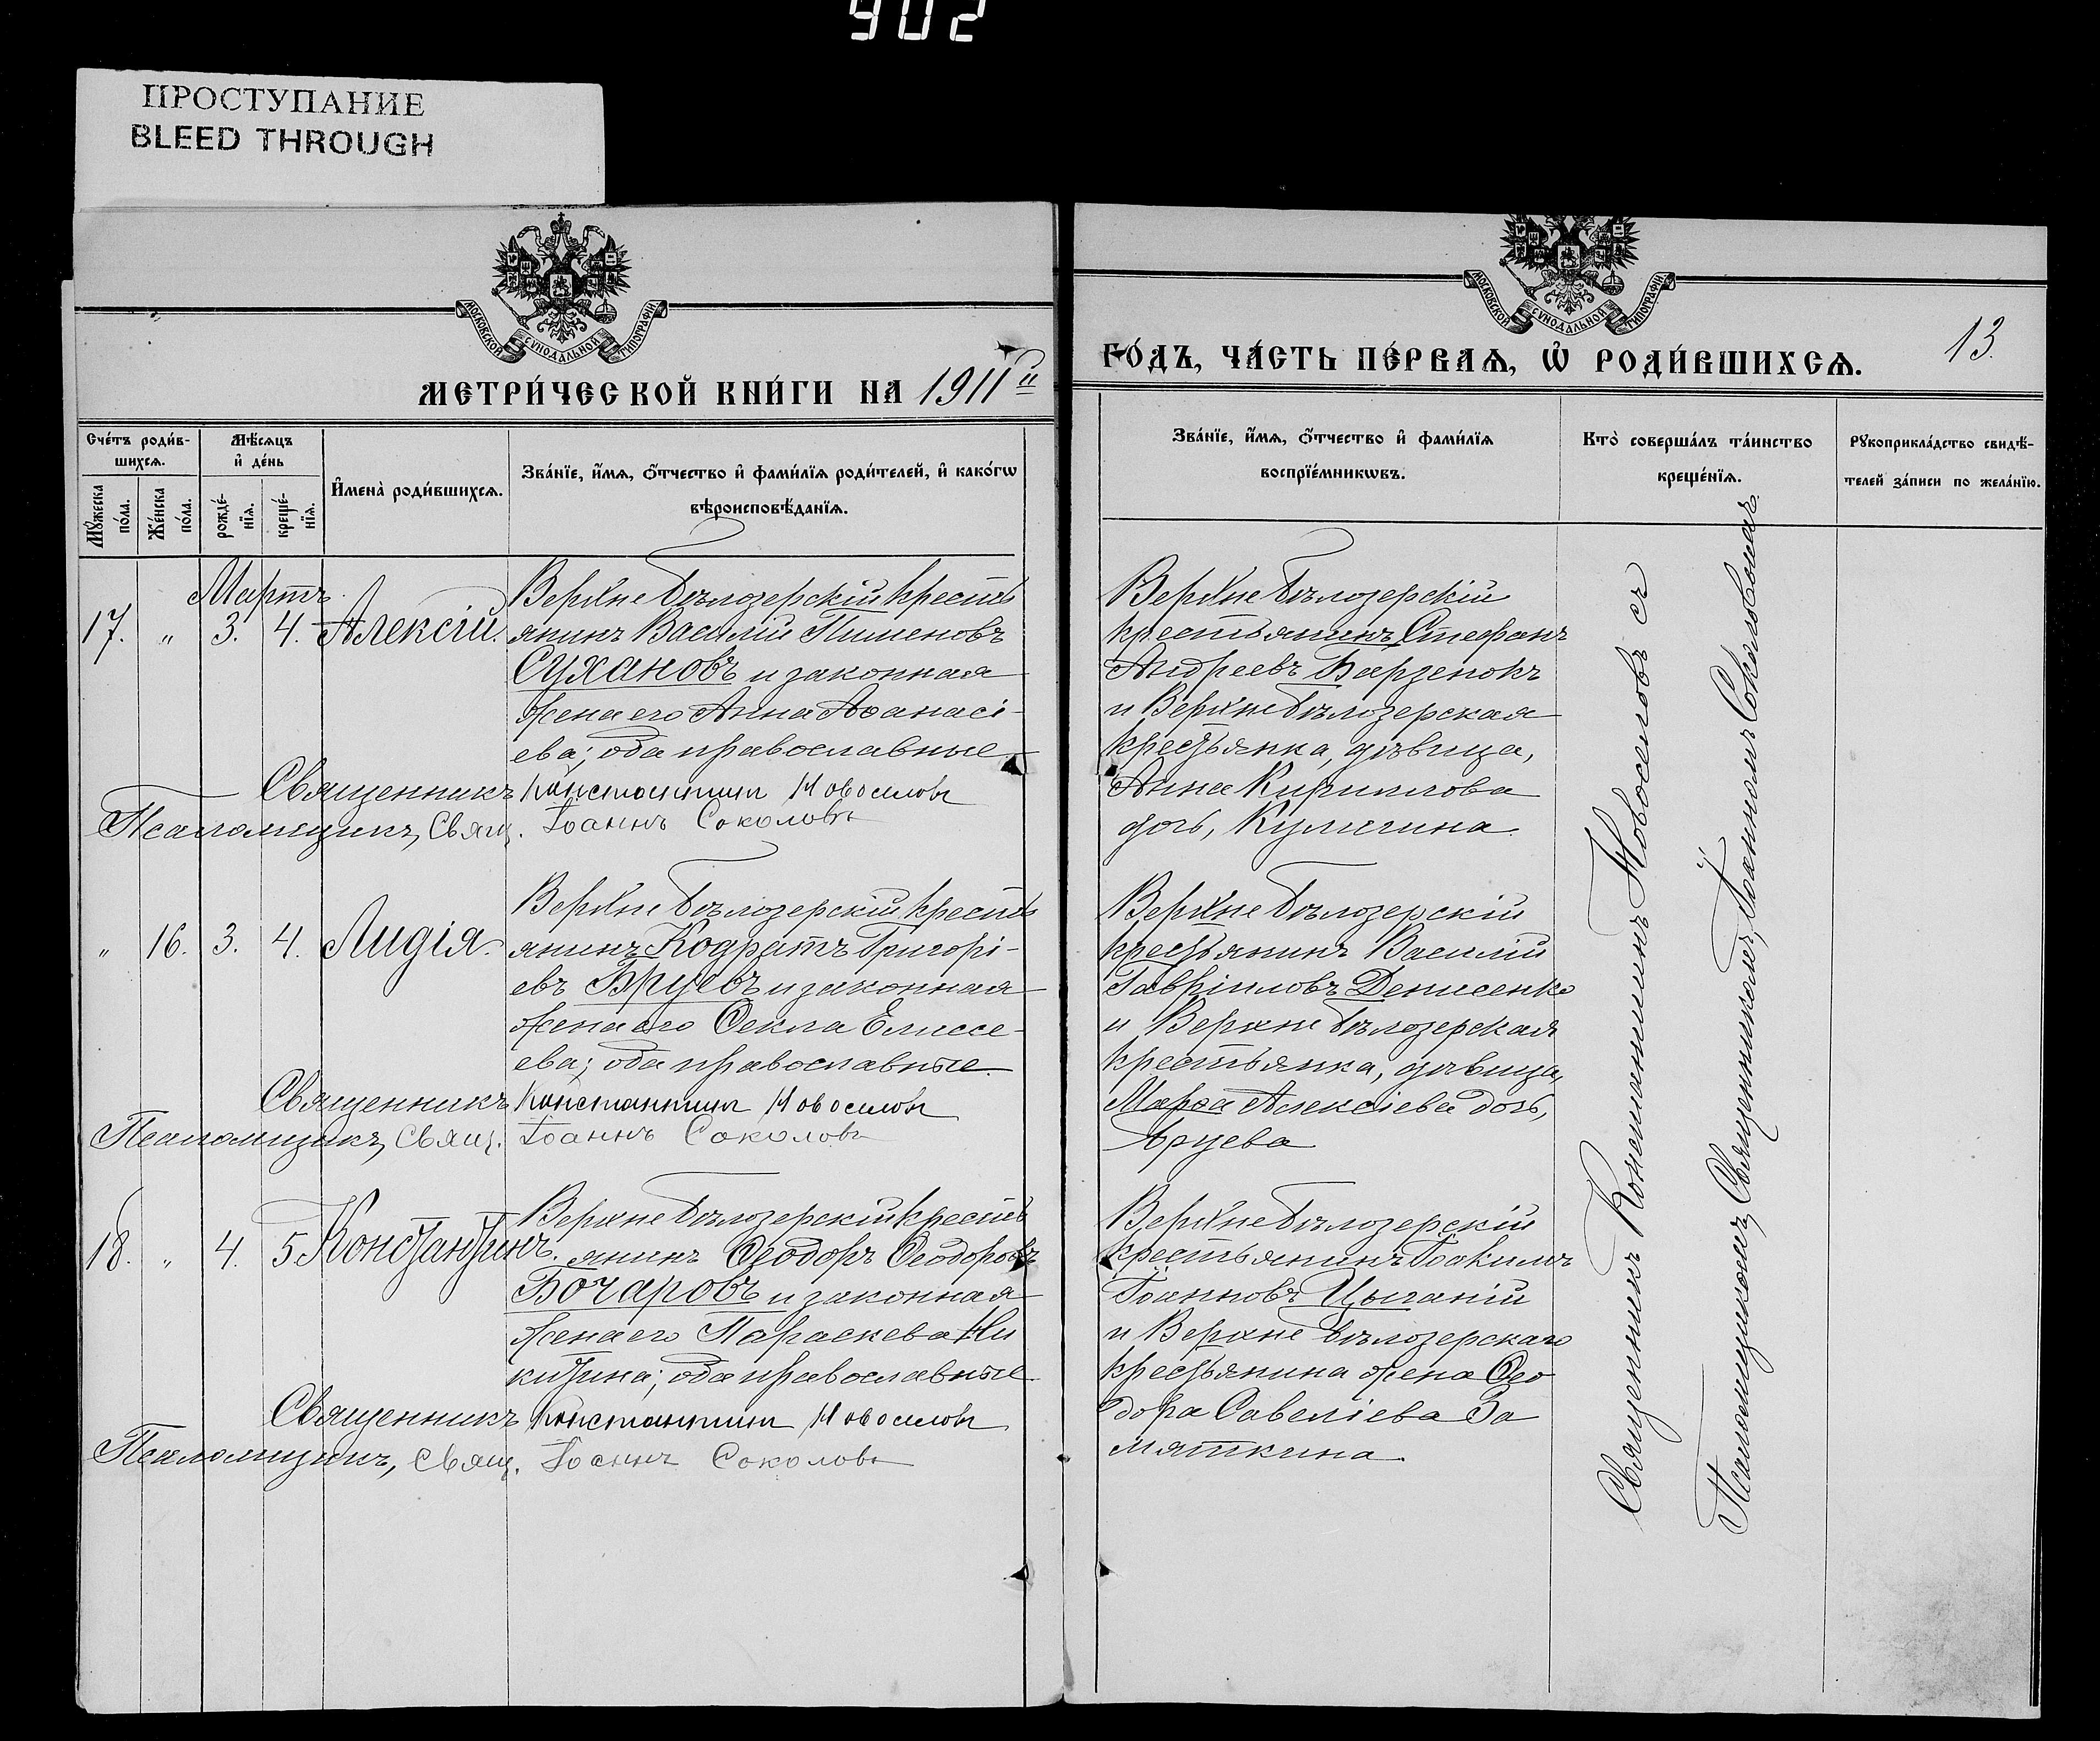 902
ПРОСТУПАНИЕ
BLEED THROUGH
МОСКОВСКОЙ СѴНОДАЛЬНОЙ ТИПОГРАФІИ
МЕТРИ́ЧЕСКОЙ КНИ́ГИ НА 1911й
Сче́тъ роди́в-
шихсѧ.
Мꙋ́жеска по́ла.
Же́нска по́ла.
Мѣ́сѧцъ
и҆ де́нь
рожде́-
нїѧ.
креще́-
нїѧ.
И҆мена̀ роди́вшихсѧ.
Зва́нїе, и҆́мѧ, ѻ҆́тчество и҆ фами́лїѧ роди́телей, и҆ како́гѡ
вѣроисповѣ́данїѧ.
Мартъ.
17. „ 3. 4. Алексій.
Верхне Бѣлозерскій кресть
янинъ Василій Пименовъ
Сухановъ и законная
жена его Анна Аѳанасі-
ева; оба православные
Священникъ Константинъ Новоселовъ
Псаломщикъ, Свящ. Іоаннъ Соколовъ
„ 16. 3. 4. Лидія.
Верхне Бѣлозерскій кресть
янинъ Кодратъ Григорі-
евъ Бруевъ и законная
жена его Ѳекла Елиссе-
ева; оба православные
Священникъ Константинъ Новоселовъ
Псаломщикъ, Свящ. Іоаннъ Соколовъ
18. „ 4. 5 Константинъ.
Верхне Бѣлозерскій кресть
янинъ Ѳеодоръ Ѳеодоровъ
Бочаровъ и законная
жена его Параскева Ни
китина; оба православные
Священникъ Константинъ Новоселовъ
Псаломщикъ, Свящ. Іоаннъ Соколовъ
МОСКОВСКОЙ СѴНОДАЛЬНОЙ ТИПОГРАФІИ
ГО́ДЪ, ЧА́СТЬ ПЕ́РВАѦ, Ѡ҆ РОДИ́ВШИХСѦ.
13.
Зва́нїе, и҆́мѧ, ѻ҆́тчество и҆ фами́лїѧ
воспрїе́мникѡвъ.
Кто̀ соверша́лъ та́инство
креще́нїѧ.
Рꙋкоприкла́дство свидѣ́-
телей за́писи по жела́нїю.
Верхне Бѣлозерскій
крестьянинъ Стефанъ
Андреевъ Барзенокъ
и Верхне Бѣлозерская
крестьянка, дѣвица,
Анна Кириллова
дочь, Кулигина.
Верхне Бѣлозерскій
крестьянинъ Василій
Гавріиловъ Денисенко
и Верхне Бѣлозерская
крестьянка, дѣвица,
Марѳа Алексіева дочь,
Бруева
Верхне Бѣлозерскій
крестьянинъ Іоакимъ
Іоанновъ Цыганій
и Верхне Бѣлозерскаго
крестьянина жена Ѳео
дора Савеліева За
мяткина.
Священникъ Константинъ Новоселовъ съ
Псаломщикомъ, Священникомъ, Іоанномъ Соколовымъ.